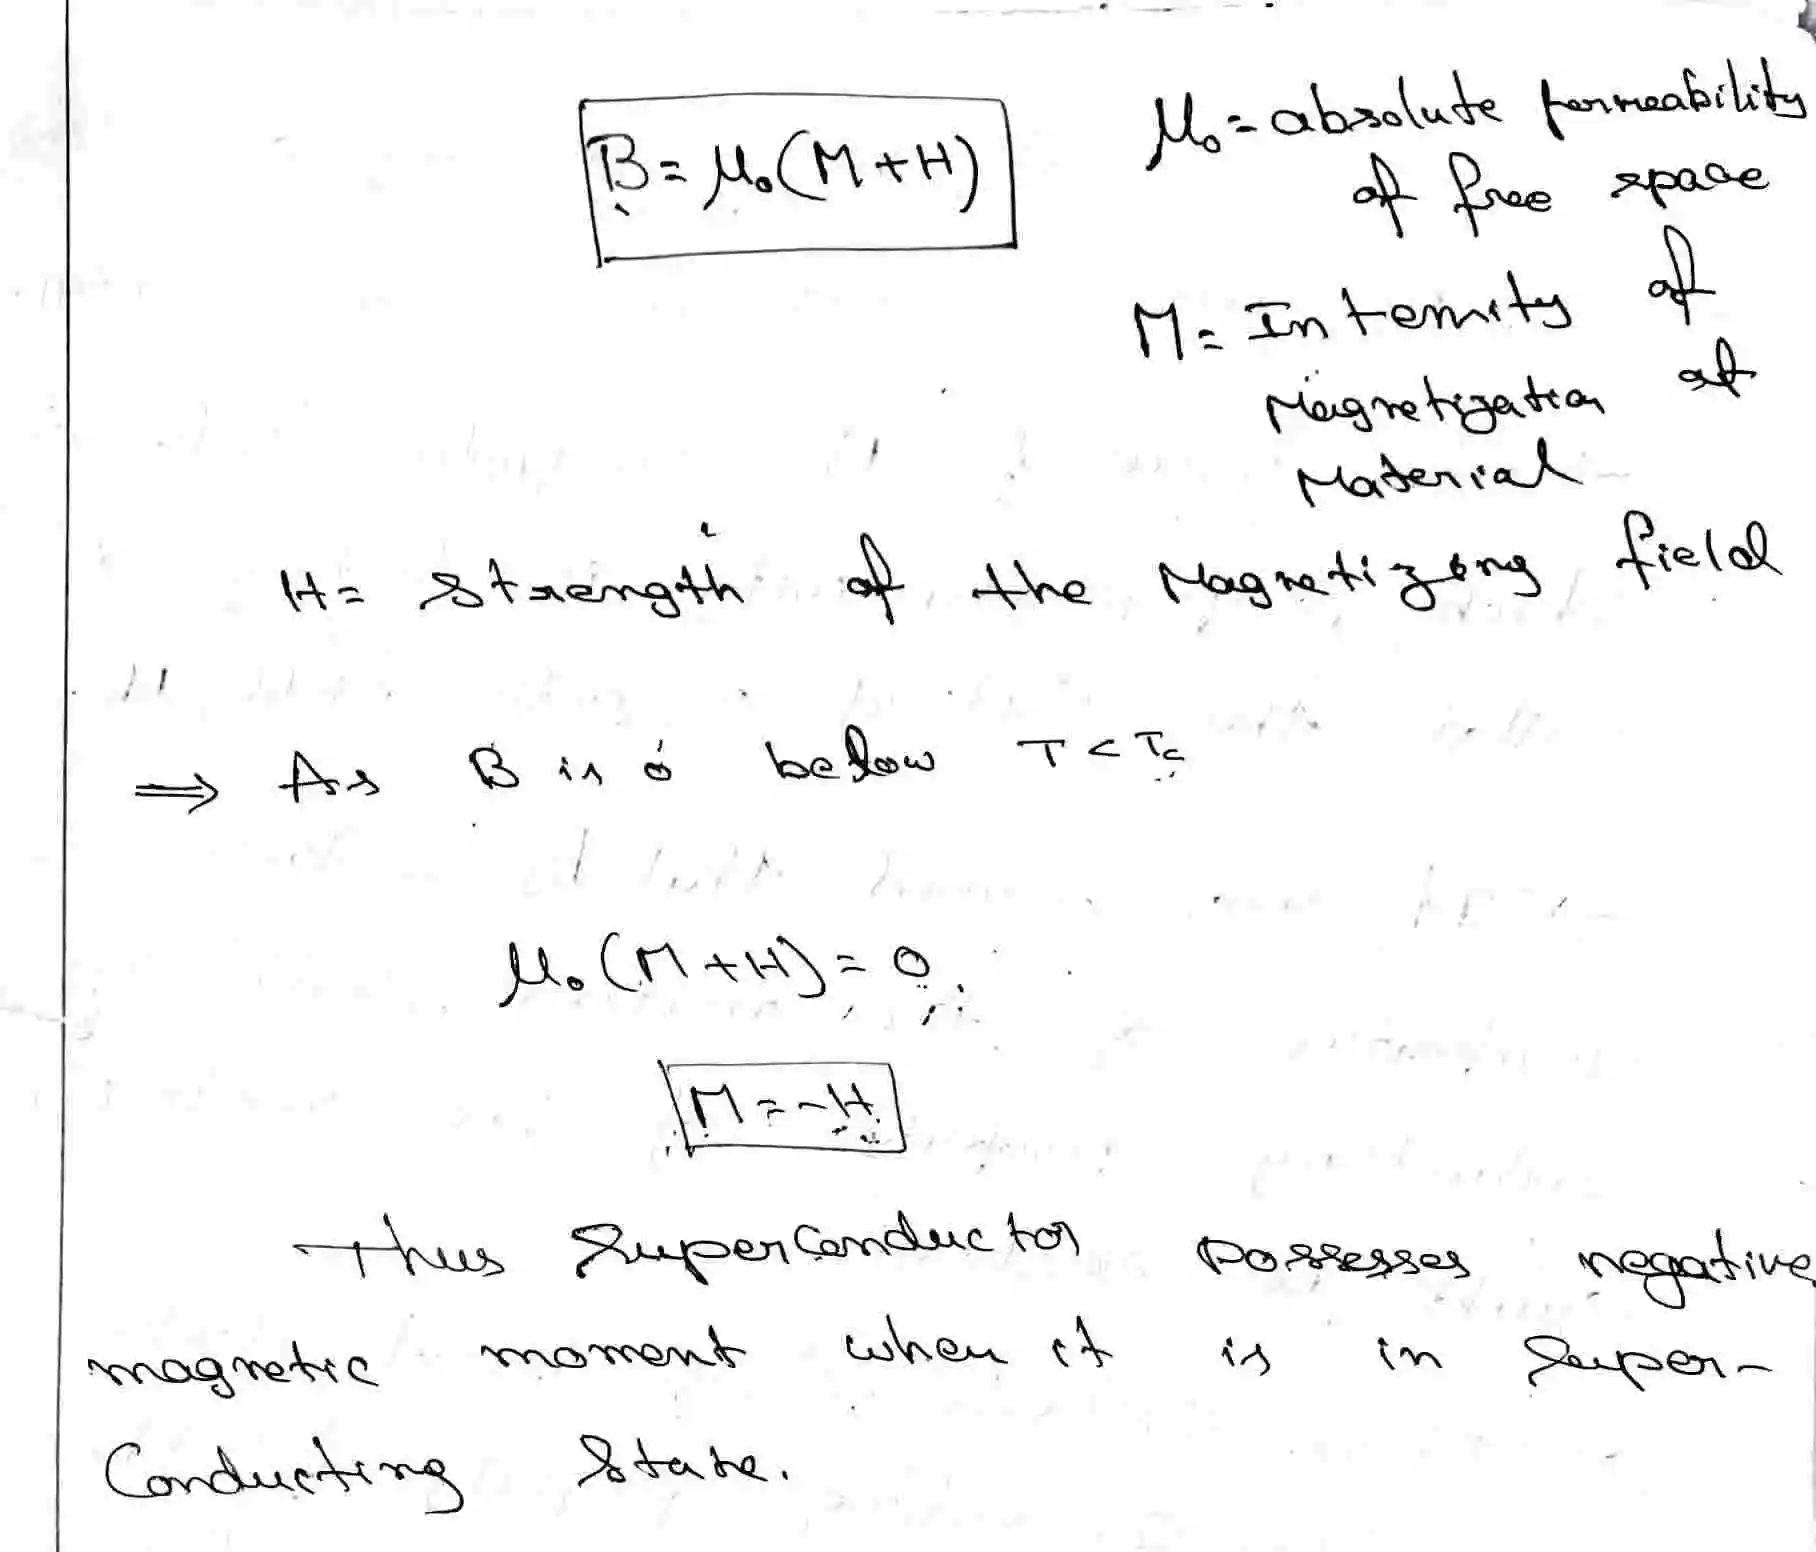 B = μ₀(M+H)
μ₀ = absolute permeability
of free space
M = Intensity of
Magnetization of
Material
H = Strength of the Magnetizing field
⇒ As B is 0 below T < Tc
μ₀(M+H) = 0
M = -H
Thus Superconductor possesses negative
magnetic moment when it is in Super-
Conducting State.